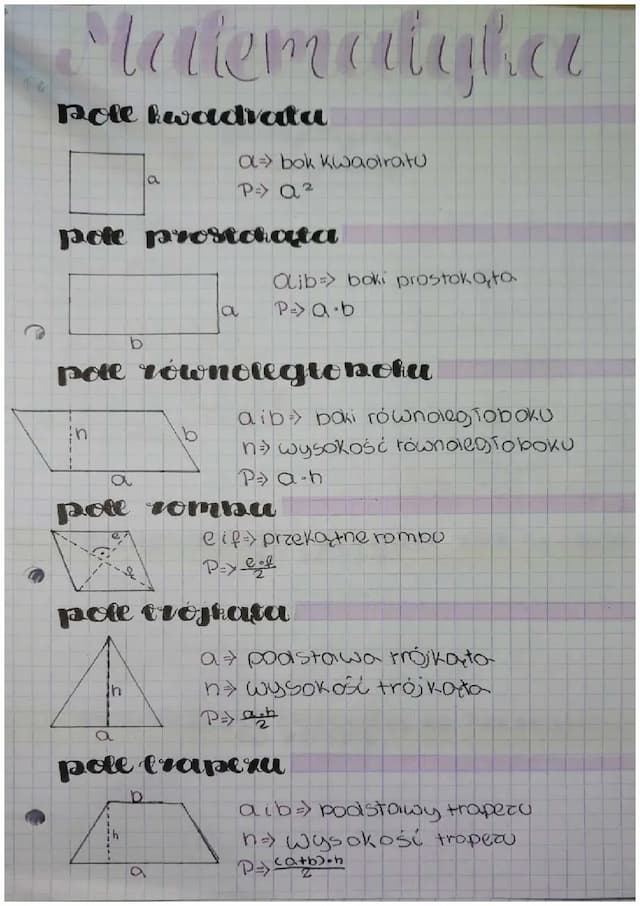 Matematyka
pole kwadratu
a
a => bok kwadratu
P => a²
pole prostokąta
a
b
a i b => boki prostokąta
P => a · b
pole równoległoboku
h
b
a
a i b => boki równoległoboku
h => wysokość równoległoboku
P => a · h
pole rombu
e
f
e i f => przekątne rombu
P => e · f / 2
pole trójkąta
h
a
a => podstawa trójkąta
h => wysokość trójkąta
P => a · h / 2
pole trapezu
b
h
a
a i b => podstawy trapezu
h => wysokość trapezu
P => (a + b) · h / 2